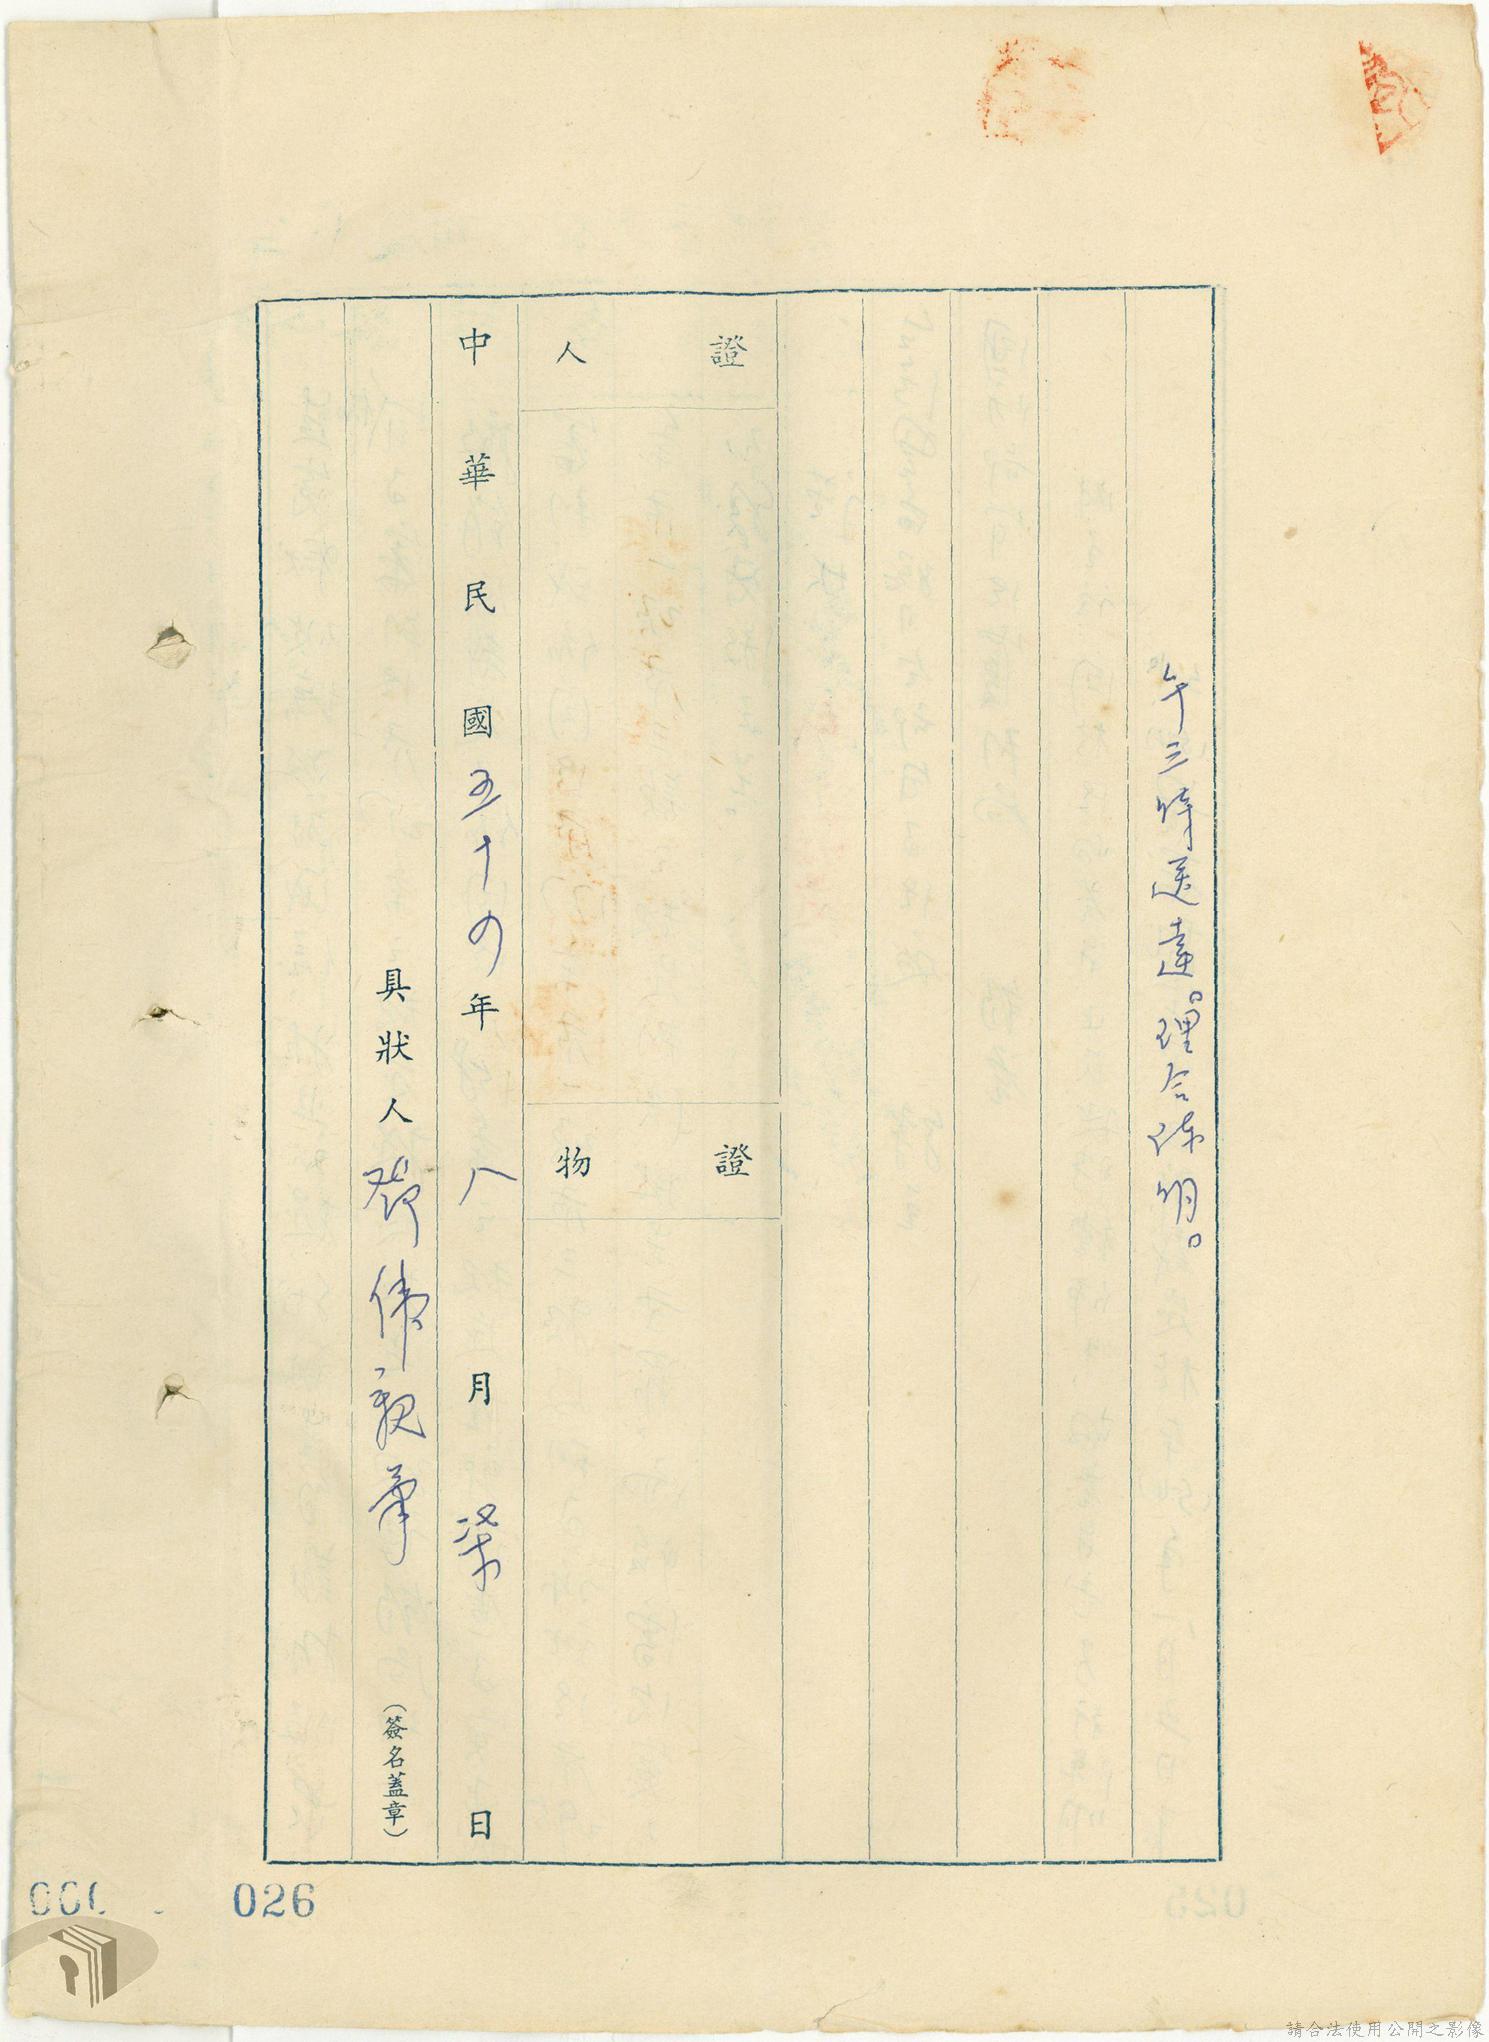 午三時送達。理合陳明。
證人
證物
中華民國五十四年八月柒日
具狀人鄧偉親筆(簽名蓋章)
026
請合法使用公開之影像